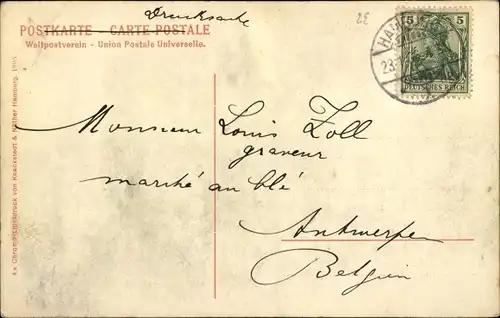 Drucksache
2E
POSTKARTE - CARTE POSTALE
Weltpostverein - Union Postale Universelle.
5 5
DEUTSCHES REICH
HAM
23.
Monsieur Louis Zoll
graveur
marché au blé
Antwerpen
Belgien
4x Chromolichtdruck von Knackstedt & Näther Hamburg.